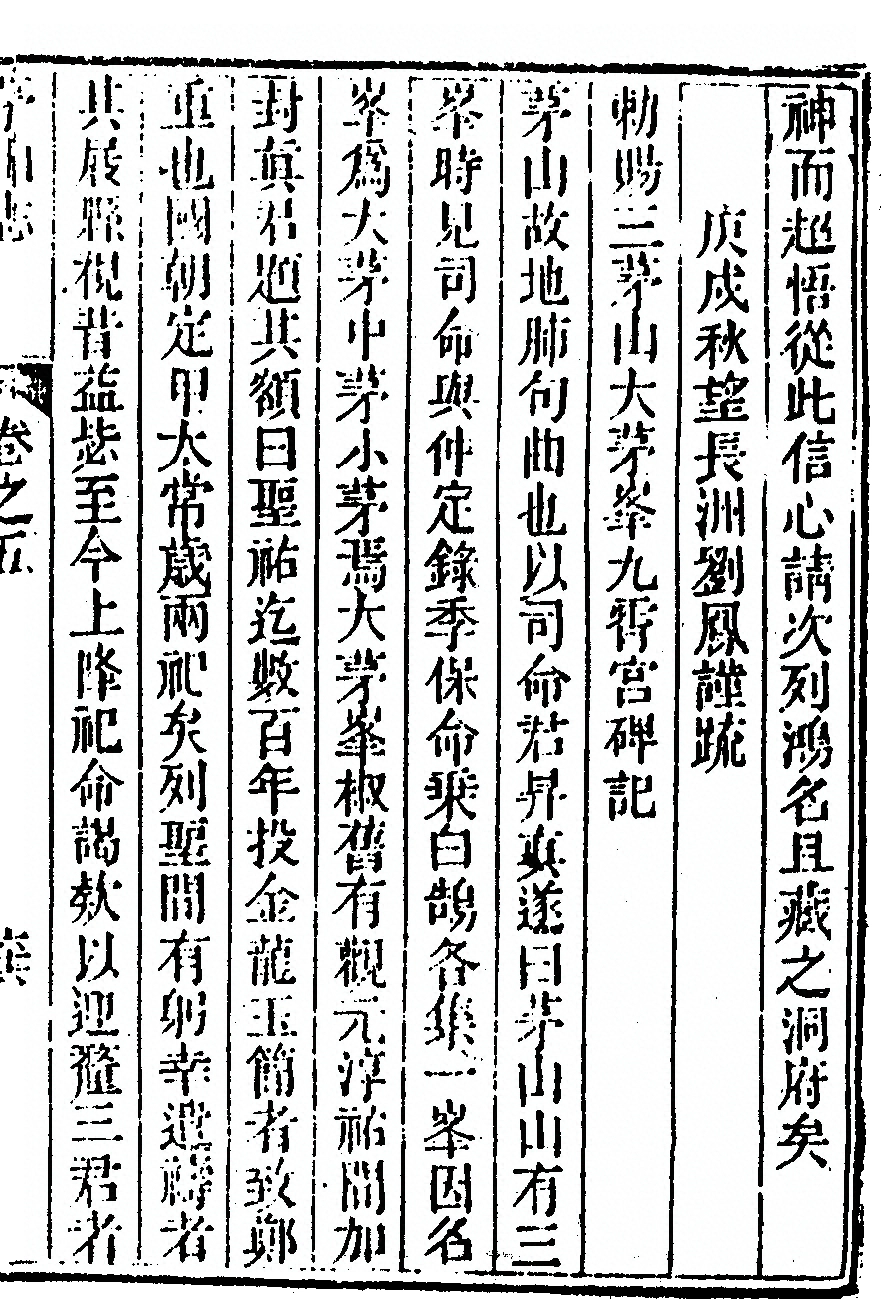 神而超悟從此信心請次列鴻名且藏之洞府矣
庚戌秋望長洲劉鳳謹疏
勑賜三茅山大茅峯九霄宮碑記
茅山故地肺句曲也以司命君昇真遂曰茅山山有三
峯時見司命與仲定錄季保命乗白鵠各集一峯因名
峯爲大茅中茅小茅焉大茅峯椒舊有觀元淳祐間加
封真君題其額曰聖祐迄數百年投金龍玉簡者致鄭
重也國朝定甲太常歲兩祀矣列聖間有躬幸遣禱者
其展縣視昔益
至今上降祀命謁欵以迎釐三君者
茅山志
卷之五